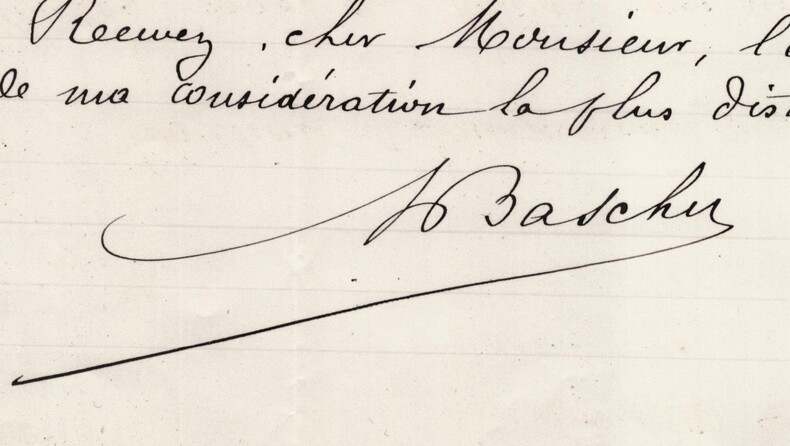 Recevez, cher Monsieur, l'a
de ma considération la plus dist
Bascher